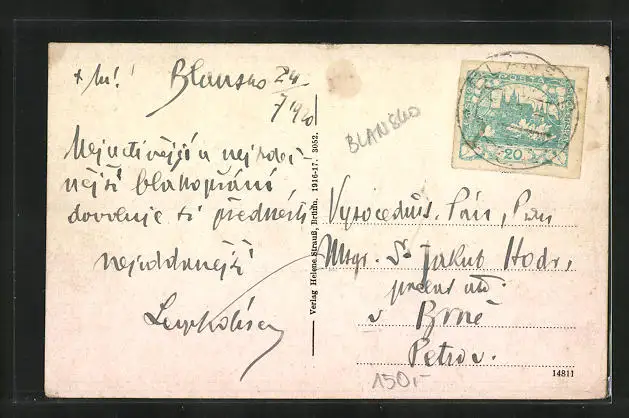 Blansko 24/
7 1920
Nejuctivější a nejsrdeč-
nější blahopřání
dovoluje si přednésti
nejoddanější
Verlag Helene Strauß, Brünn. 1916-17. 3052.
POŠTA
20
BLANSKO
Vysocedůst. Pán, Pan
Msgr. Dr Jakub Hodr,
v Brně
Petrov.
150,-
14811